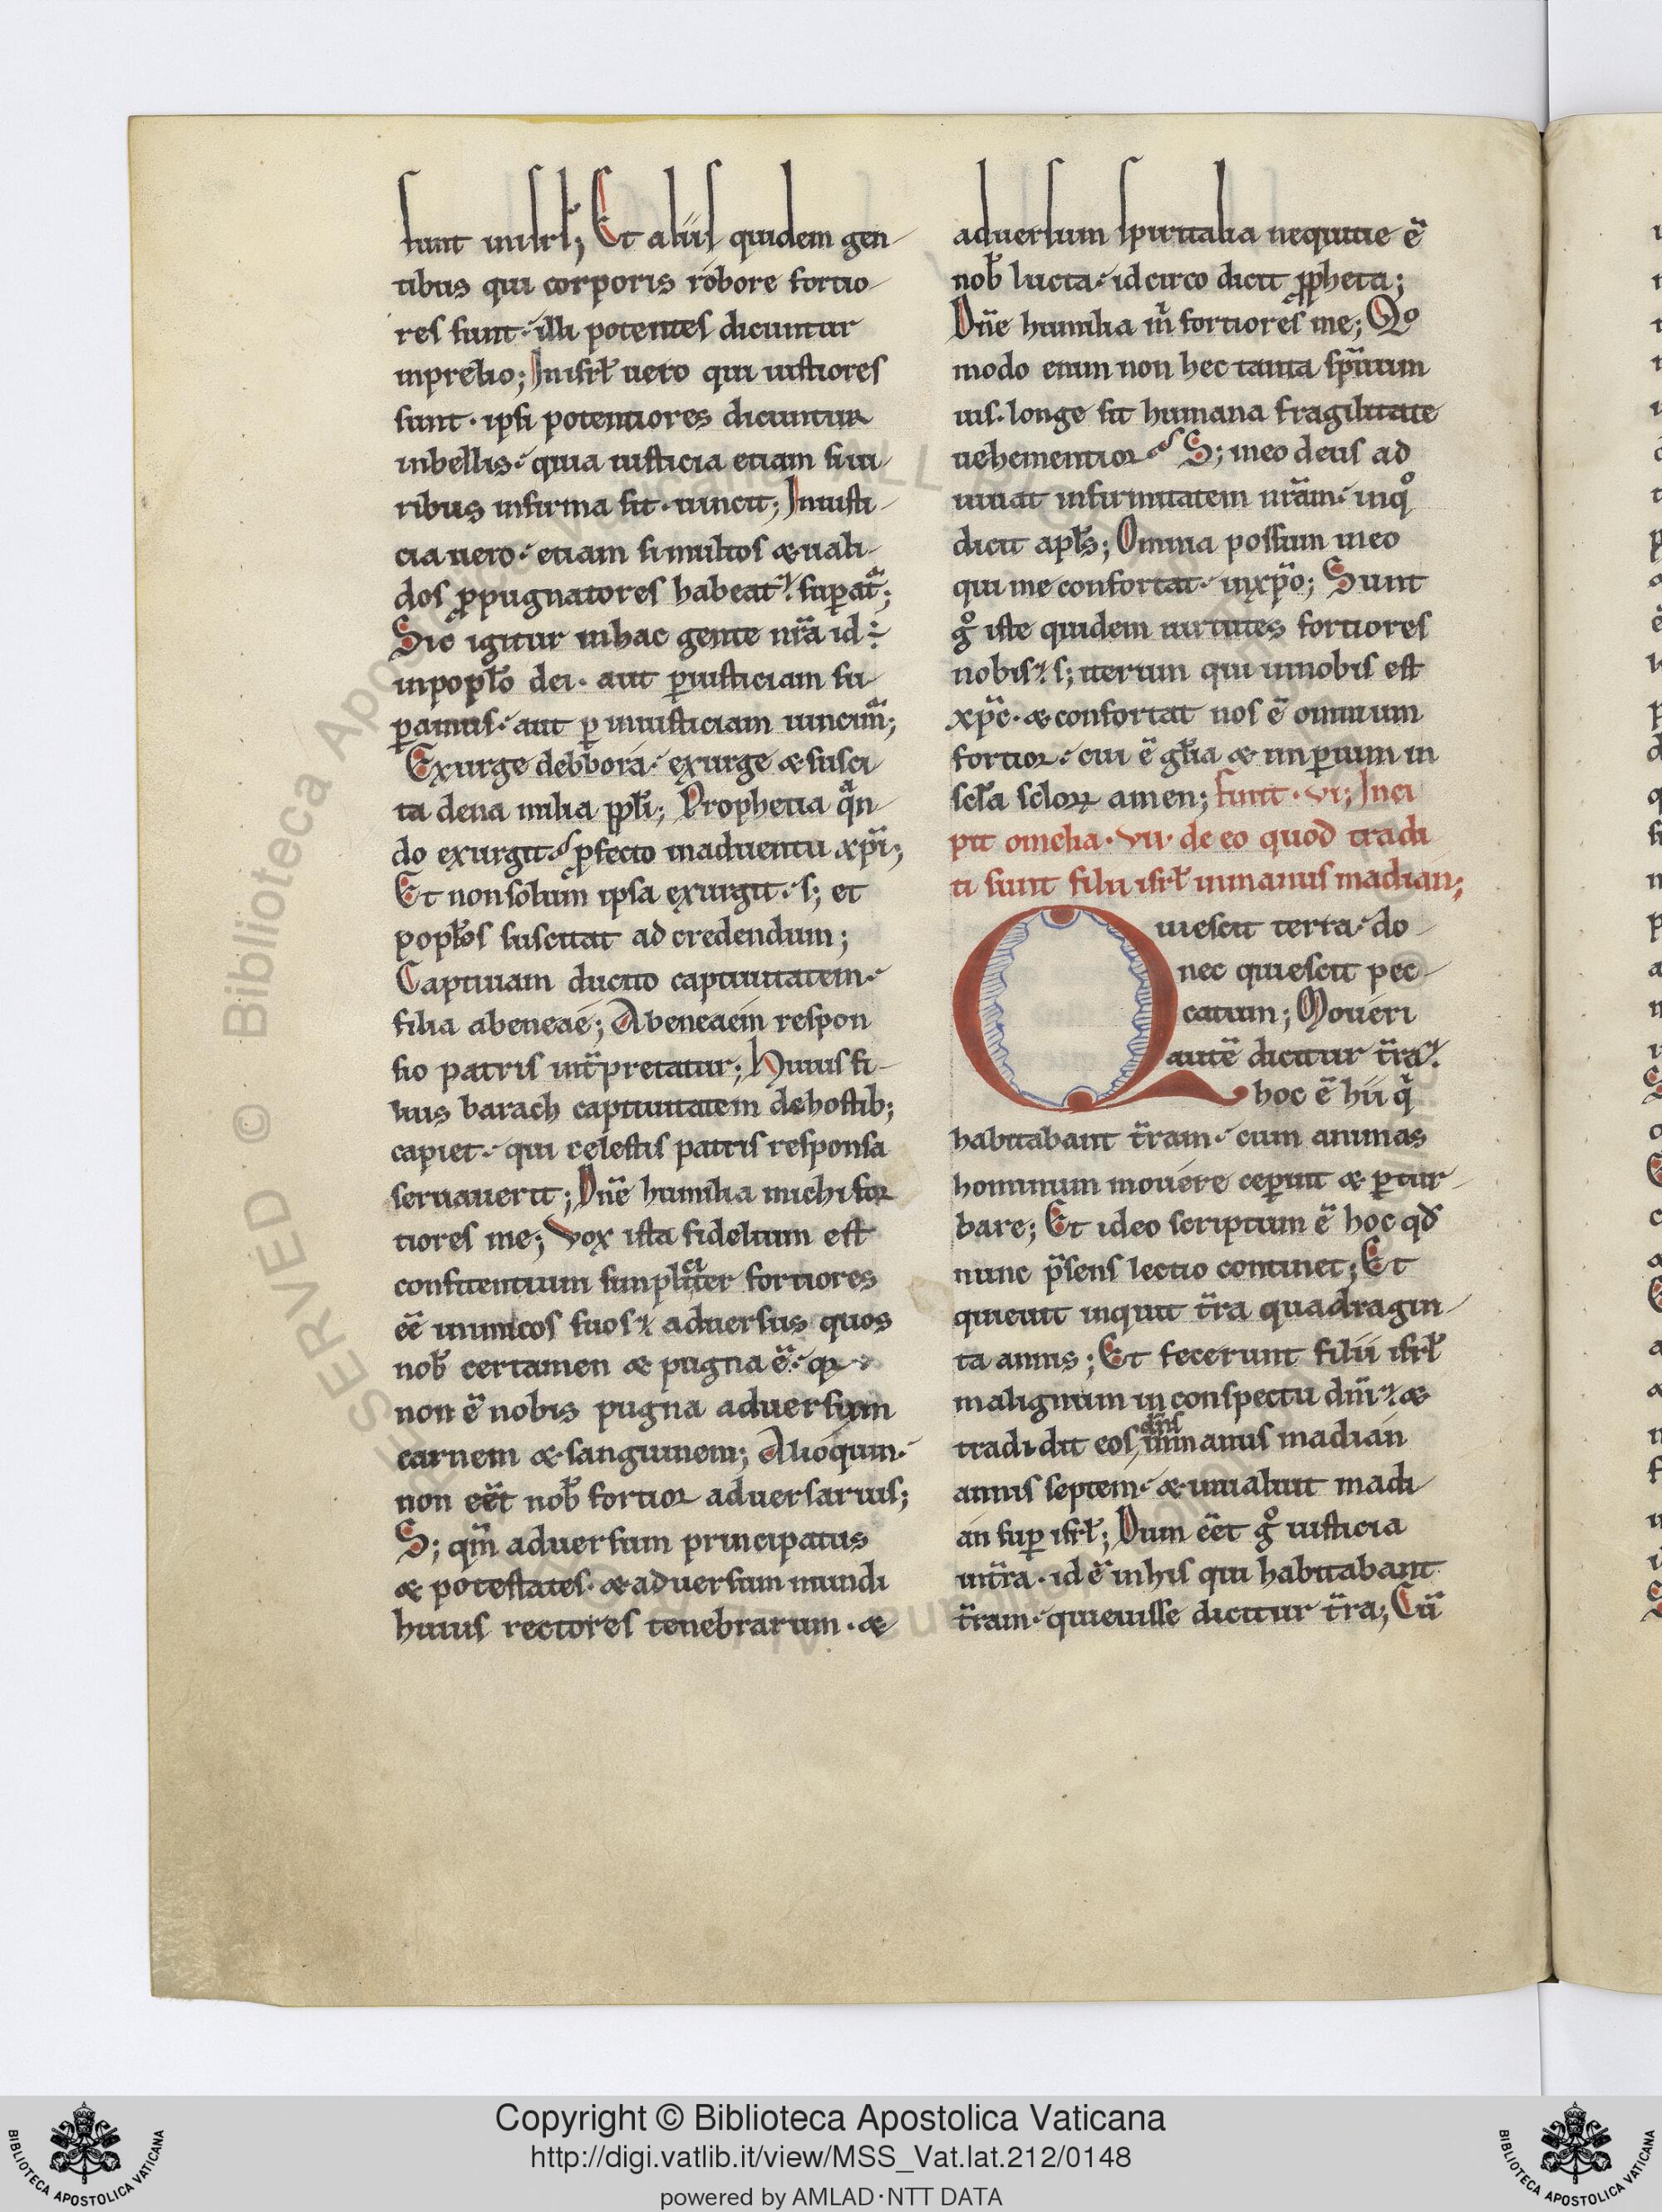 sunt inisrł; Et aliis quidem gen-
tibus qui corporis robore fortio-
res sunt· illi potentes dicuntur
inprelio; Inisrł uero qui iustiores
sunt· ipsi potentiores dicuntur
inbellis· quia iusticia etiam si ui-
ribus infirma sit· uincit; Iniusti-
cia uero· etiam si multos & uali-
dos ꝓpugnatores habeat· supat̃;
Sic igitur inhac gente nr̃a id ÷
inpopło dei· aut ꝑiusticiam su-
ꝑamus· aut ꝑ iniusticiam uincim̃;
Exurge debbora· exurge & susci-
ta dena milia ppłi; Prophetia qᵃn-
do exurgit· ꝓfecto inaduentu xp̃i;
Et nonsolum ipsa exurgit· s; et
popłos suscitat ad credendum;
Captiuam ducito captiuitatem·
filia abeneae; Abeneaem respon
sio patris int̃pretatur; Huius fi-
lius barach captiuitatem dehostib;
capiet· qui celestis patris responsa
seruauerit; Dñe humilia michi for
tiores me; Vox ista fidelium est
confitentium simplicit̃er fortiores
eẽ inimicos suos· aduersus quos
nob̃ certamen & pugna ẽ· qꝛ
non ẽ nobis pugna aduersum
carnem & sanguinem; Alioquin·
non eẽt nob̃ fortior aduersarius;
S; qm̃ aduersum principatus
& potestates· & aduersum mundi
huius rectores tenebrarum· &
aduersum spiritalia nequitie ẽ
nob̃ lucta· idcirco dicit ꝓpheta;
Dñe humilia m fortiores me; Qo
modo enim non hec tanta sp̃ituum
uis· longe sit humana fragilitate
uehementior S; ineo deus ad
iuuat infirmitatem nr̃am· inqͦ
dicit apłs; Omnia possum ineo
qui me confortat· inxp̃o; Sunt
gͦ iste quidem uirtutes fortiores
nobis· s; iterum qui innobis est
xp̃c· & confortat nos ẽ omnium
fortior· cui ẽ głia & imꝑium in
scła sclorꝝ amen; finit· vi; Inci
pit omelia· vii· de eo quod tradi
ti sunt filii isrł inmanus madian;
Quiescit terra· do-
nec quiescit pec-
catum; Moueri
autẽ dicitur t̃ra·
hoc ẽ hii q
habitabant t̃ram· cum animas
hominum mouere ceꝑint & ꝑtur-
bare; Et ideo scriptum ẽ hoc qd̃
nunc p̃sens lectio continet; Et
quieuit inquit t̃ra quadragin-
ta annis; Et fecerunt filii isrł
malignum in conspectu dñi· &
dñs
tradidit eos inmanus madian
annis septem· & inualuit madi
an suꝑ isrł; Dum eẽt gͦ iusticia
int̃ra· id ẽ inhis qui habitabant
t̃ram· quieuisse dicitur t̃ra; Cũ
Copyright © Biblioteca Apostolica Vaticana
http://digi.vatlib.it/view/MSS_Vat.lat.212/0148
powered by AMLAD·NTT DATA
BIBLIOTECA APOSTOLICA VATICANA
BIBLIOTECA APOSTOLICA VATICANA